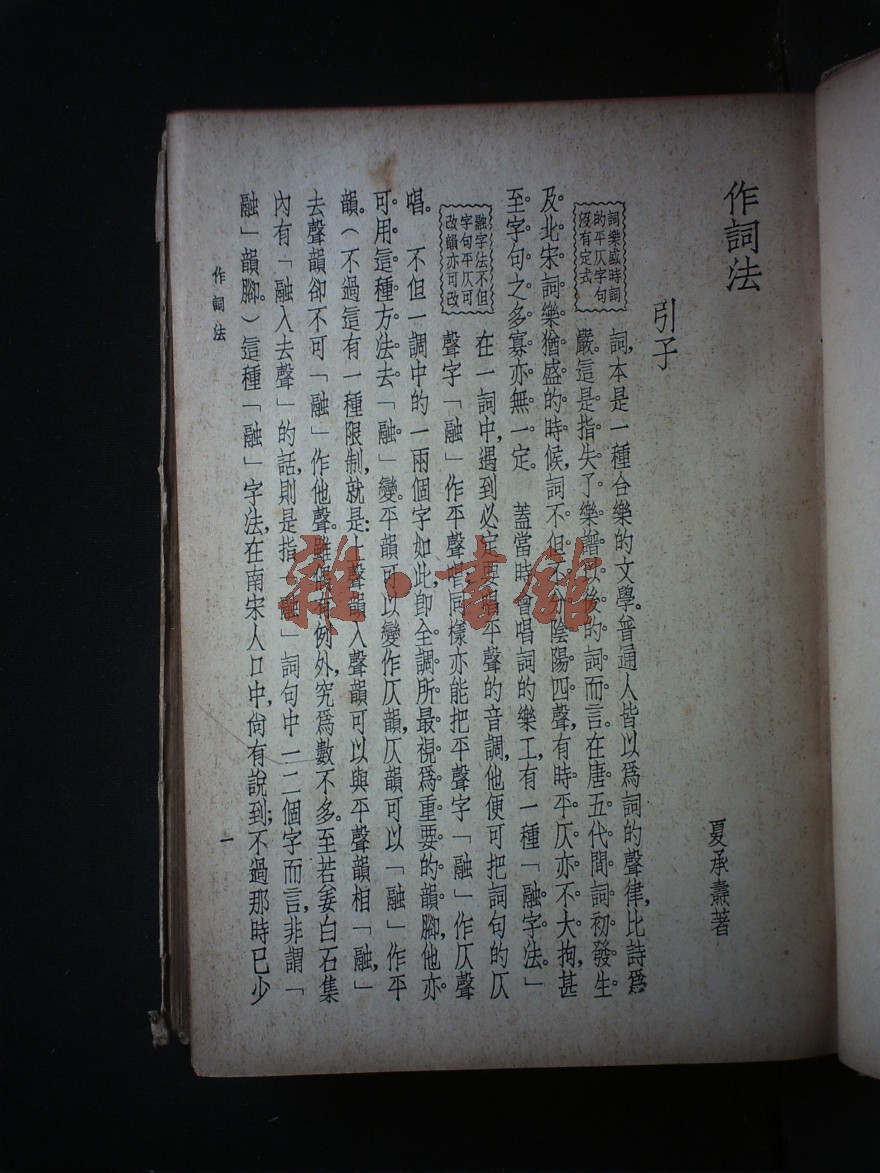 作詞法
夏承燾著
引子
詞樂盛時詞
的平仄字句
沒有定式
詞,本是一種合樂的文學。普通人皆以爲詞的聲律,比詩爲
嚴。這是指失了樂譜以後的詞而言。在唐五代間詞初發生。
及北宋詞樂猶盛的時候,詞不但不分陰陽四聲,有時平仄亦不大拘,甚
至字句之多寡亦無一定。 蓋當時會唱詞的樂工,有一種「融字法。」
融字法不但
字句平仄可
改韻亦可改
在一詞中,遇到必定要唱平聲的音調,他便可把詞句的仄
聲字「融」作平聲唱,同樣亦能把平聲字「融」作仄聲
唱。 不但一調中的一兩個字如此,卽全調所最視爲重要的韻腳,他亦
可用這種方法去「融」變。平韻可以變作仄韻,仄韻可以「融」作平
韻。(不過這有一種限制,就是:上聲韻入聲韻可以與平聲韻相「融,」
去聲韻卻不可「融」作他聲。雖偶有例外,究爲數不多。至若姜白石集
內有「融入去聲」的話,則是指「融」詞句中一二個字而言,非謂「
融」韻腳。)這種「融」字法,在南宋人口中,尙有說到;不過那時已少
作詞法
一
雜·書館